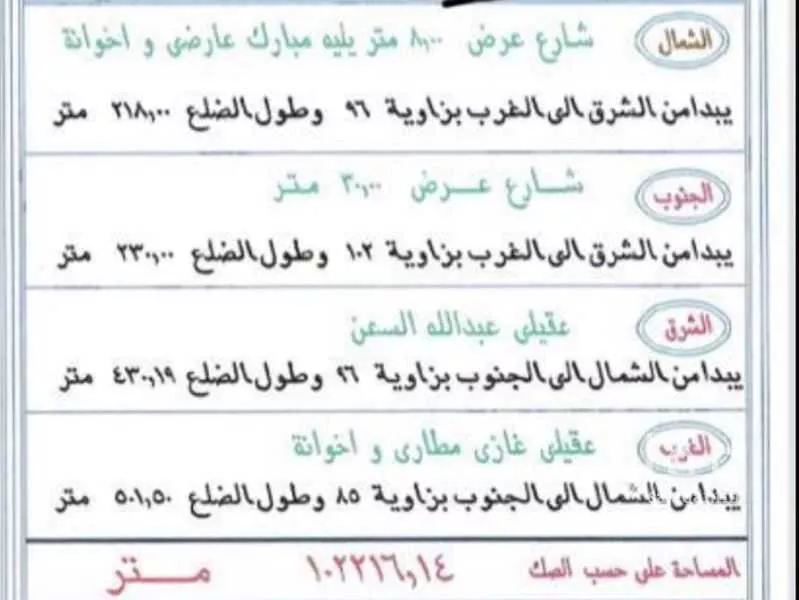 الشمال شارع عرض ٨,٠٠ متر يليه مبارك عارضى و اخوانة
يبدامن الشرق الى الغرب بزاوية ٩٦ وطول الضلع ٢١٨,٠٠ متر
الجنوب شارع عرض ٣٠,٠٠ متر
يبدامن الشرق الى الغرب بزاوية ١٠٢ وطول الضلع ٢٣٠,٠٠ متر
الشرق عقيلى عبدالله السعن
يبدامن الشمال الى الجنوب بزاوية ٩٦ وطول الضلع ٤٣٠,١٩ متر
الغرب عقيلى غازى مطارى و اخوانة
يبدامن الشمال الى الجنوب بزاوية ٨٥ وطول الضلع ٥٠١,٥٠ متر
المساحة على حسب الصك ١٠٢٢١٦,١٤ متر